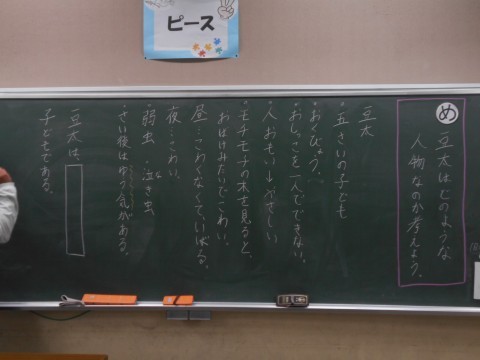 ピース
め
豆太はどのような
人物なのか考えよう。
豆太
・五さいの子ども
・おくびょう。
・おしっこを一人でできない。
・人おもい→やさしい
・モチモチの木を見ると、
おばけみたいでこわい。
昼…こわくなくていばる。
夜…こわい。
・弱虫・泣き虫
・さい後はゆう気がある。
豆太は、
子どもである。